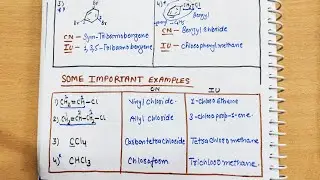 3)
Br
Br
Br
CN - Sym-Tribromobenzene
IU - 1,3,5-Tribromobenzene
4)*
CH2-Cl
Benzyl
CN - Benzyl chloride
IU - Chlorophenylmethane
SOME IMPORTANT EXAMPLES
CN IU
1) CH2=CH-Cl Vinyl Chloride 1-Chloro Ethene
2) CH2=CH-CH2-Cl Allyl Chloride 3-chloroprop-1-ene
3) CCl4 Carbontetrachloride Tetrachloromethane
4)* CHCl3 Chloroform Trichloromethane